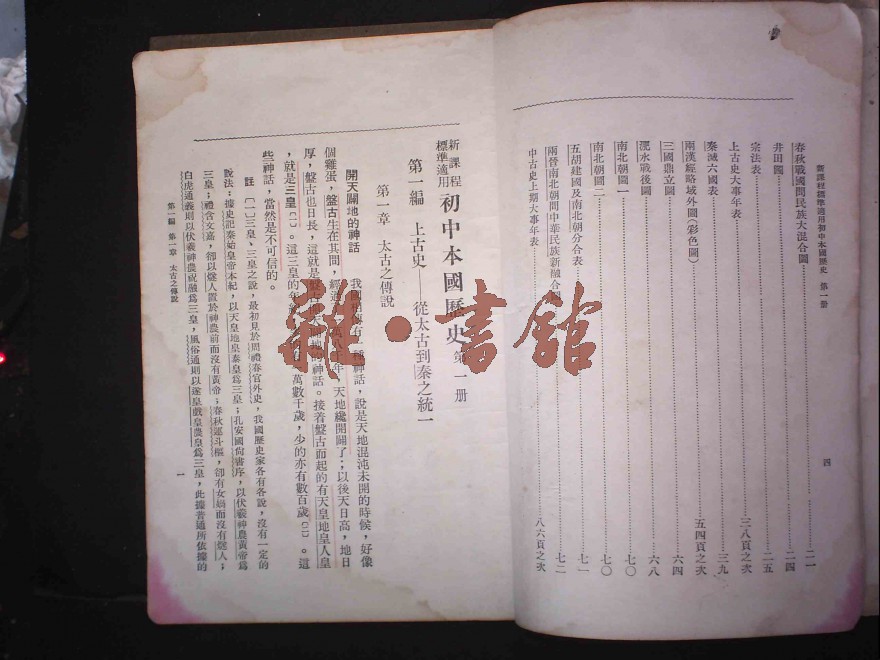 新課程標準適用初中本國歷史 第一册
春秋戰國間民族大混合圖……二一
井田圖……二四
宗法表……二五
上古史大事年表……三八頁之次
秦滅六國表……三九
兩漢經略域外圖(彩色圖)……五四頁之次
三國鼎立圖……六四
淝水戰後圖……六八
南北朝圖一……七〇
南北朝圖二……七〇
五胡建國及南北朝分合表……七一
兩晉南北朝間中華民族新融合圖……七二
中古史上期大事年表……八六頁之次
四
新課程標準適用 初中本國歷史 第一册
第一編 上古史——從太古到秦之統一
第一章 太古之傳說
開天闢地的神話 我國相傳有一種神話,說是天地混沌未開的時候,好像
個雞蛋,盤古生在其間,經過一萬八千年,天地纔開闢了;以後天日高,地日
厚,盤古也日長,這就是盤古開天闢地的神話。接着盤古而起的有天皇地皇人皇
,就是三皇〔一〕。這三皇的年 萬數千歲,少的亦有數百歲〔二〕。這
些神話,當然是不可信的。
註 〔一〕三皇、三皇之說,最初見於周禮春官外史,我國歷史家各有各說,沒有一定的
說法:據史記秦始皇帝本紀,以天皇地皇泰皇爲三皇;孔安國尙書序,以伏羲神農黃帝爲
三皇;禮含文嘉,卻以燧人置於神農前而沒有黃帝;春秋運斗樞,卻有女媧而沒有燧人;
白虎通義則以伏羲神農祝融爲三皇,風俗通則以遂皇戲皇農皇爲三皇,此據普通所依據的
第一編 第一章 太古之傳說
一
雜·書館